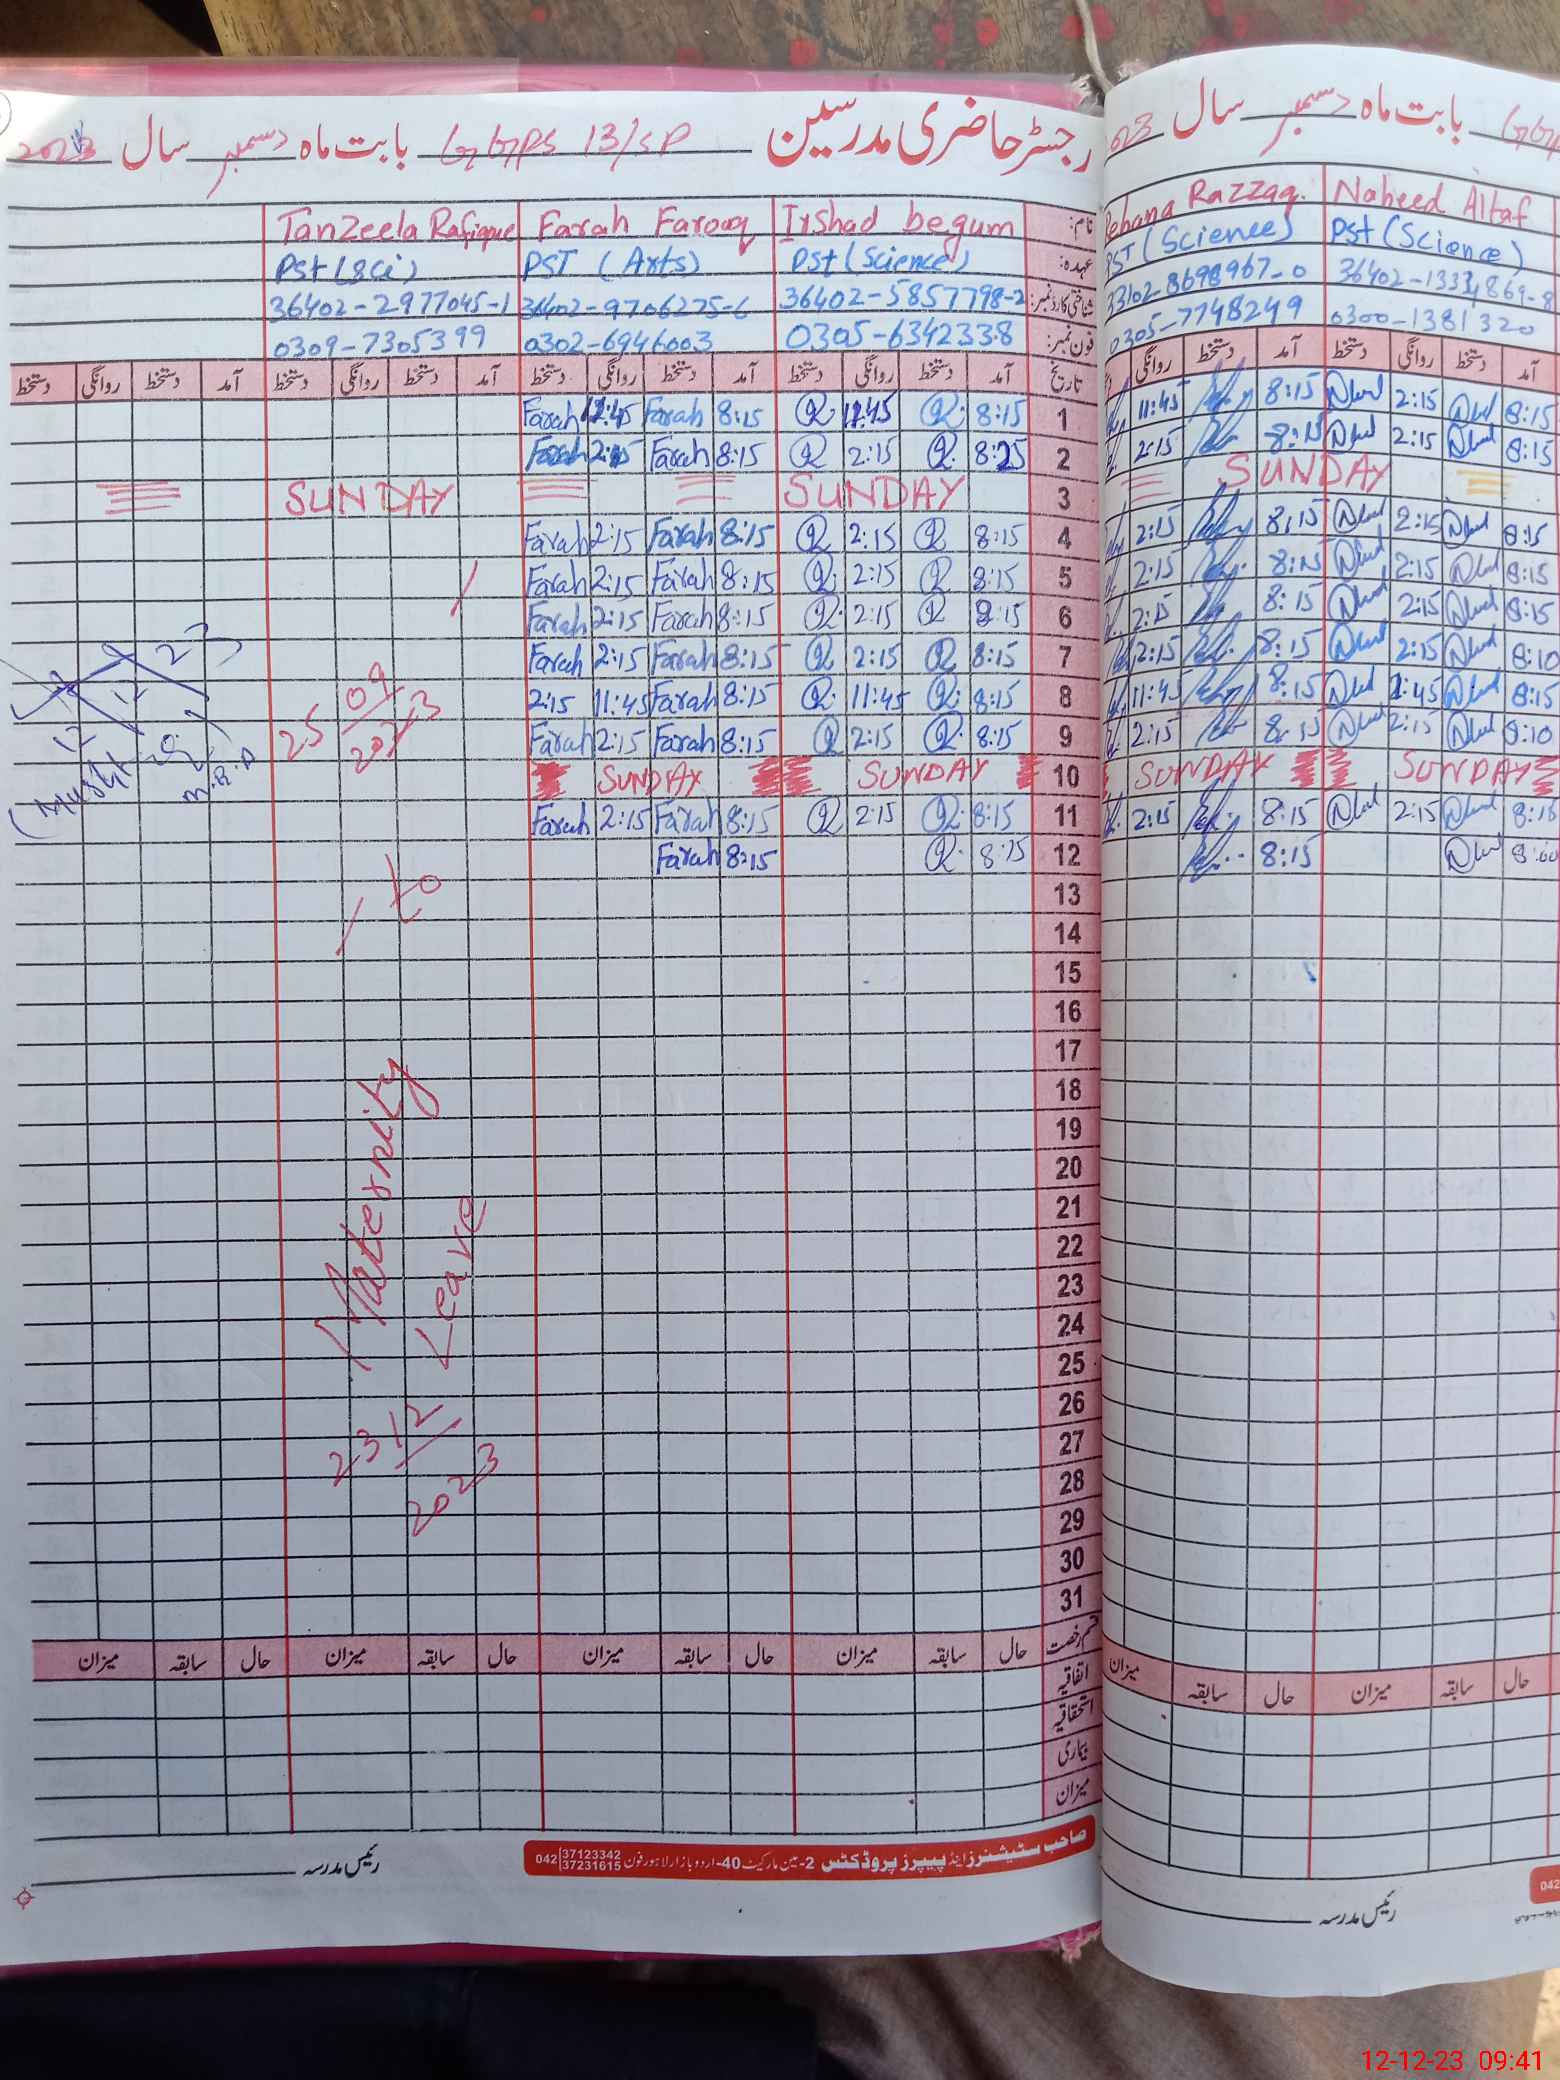 رجسٹر حاضری مدرسین GGPS 13/SP بابت ماہ دسمبر سال 2023
نام: Irshad begum Farah Farooq TanZeela Rafique
عہدہ: Pst (Science) PST (Arts) Pst (Sci)
شناختی کارڈ نمبر: 36402-5857798-2 36402-9706275-6 36402-2977045-1
فون نمبر: 0305-6342338 0302-6946003 0309-7305399
تاریخ آمد دستخط روانگی دستخط آمد دستخط روانگی دستخط آمد دستخط روانگی دستخط آمد دستخط روانگی دستخط
1 8:15 11:45 8:15 Farah 12:45 Farah
2 8:25 2:15 8:15 Farah 2:15 Farah
3 SUNDAY SUNDAY
4 8:15 2:15 8:15 Farah 2:15 Farah
5 8:15 2:15 8:15 Farah 2:15 Farah
6 8:15 2:15 8:15 Farah 2:15 Farah
7 8:15 2:15 8:15 Farah 2:15 Farah
8 8:15 11:45 8:15 Farah 11:45 2:15
9 8:15 2:15 8:15 Farah 2:15 Farah
10 SUNDAY SUNDAY
11 8:15 2:15 8:15 Farah 2:15 Farah
12 8:15 8:15 Farah
13
14
15
16
17
18
19
20
21
22
23
24
25
26
27
28
29
30
31
25 09
2023
to
Maternity
Leave
23 12
2023
12 12 23
رخصت حال سابقہ میزان حال سابقہ میزان حال سابقہ میزان حال سابقہ میزان
اتفاقیہ
استحقاقیہ
بیماری
میزان
صاحب سٹیشنرز اینڈ پیپرز پروڈکٹس 2-مین مارکیٹ 40-اردو بازار لاہور فون 042 37123342 37231615
رئیس مدرسہ
بابت ماہ دسمبر سال 023
Naheed Altaf Rehana Razzaq.
Pst (Science) PST (Science)
36402-13334869-8 33102-8698967-0
0300-1381320 0305-7748249
آمد دستخط روانگی دستخط آمد دستخط روانگی
8:15 2:15 8:15 11:45
8:15 2:15 8:15 2:15
SUNDAY
8:15 2:15 8:15 2:15
8:15 2:15 8:15 2:15
8:15 2:15 8:15 2:15
8:10 2:15 8:15 2:15
8:15 8:15 11:45
8:10 2:15 8:15 2:15
SUNDAY SUNDAY
8:15 2:15 8:15 2:15
8:00 8:15
حال سابقہ میزان حال سابقہ میزان
042
رئیس مدرسہ
12-12-23 09:41